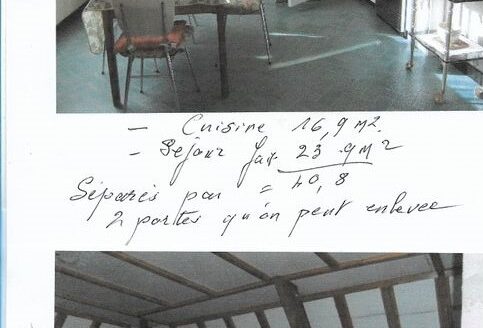 - Cuisine 16,9 m2.
- Séjour fait 23.9m2
= 40,8
Séparés par
2 portes qu'on peut enlever